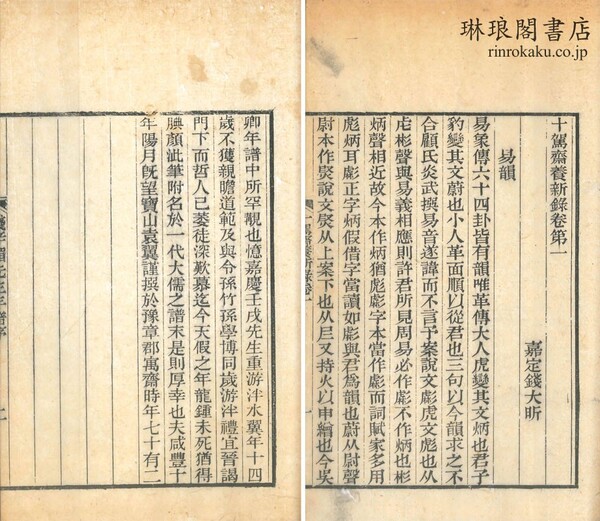 琳琅閣書店
rinrokaku.co.jp
十駕齋養新錄卷第一
嘉定錢大昕
易韻
易象傳六十四卦皆有韻唯革傳大人虎變其文炳也君子
豹變其文蔚也小人革面順以從君也三句以今韻求之不
合顧氏炎武撰易音遂諱而不言予案說文彪虎文彪也从
虍彬聲與易義相應則許君所見周易必作彪不作炳也彬
炳聲相近故今本作炳猶彪彪字本當作彪而詞賦家多用
彪炳耳彪正字炳假借字當讀如彪與君爲韻也蔚从尉聲
尉本作㷉說文㷉从上案下也从𡰥又持火以申繒也今吳
卿年譜中所罕覯也嘉慶壬戌先生重游泮水翼年十四
歲不獲親瞻道範及與令孫竹孫學博同歲游泮禮宜晉謁
門下而哲人已萎徒深歎慕迄今天假之年龍鍾未死猶得
腆顏泚筆附名於一代大儒之譜末是則厚幸也夫咸豐十
年陽月既望寶山袁翼謹撰於豫章郡寓齋時年七十有二